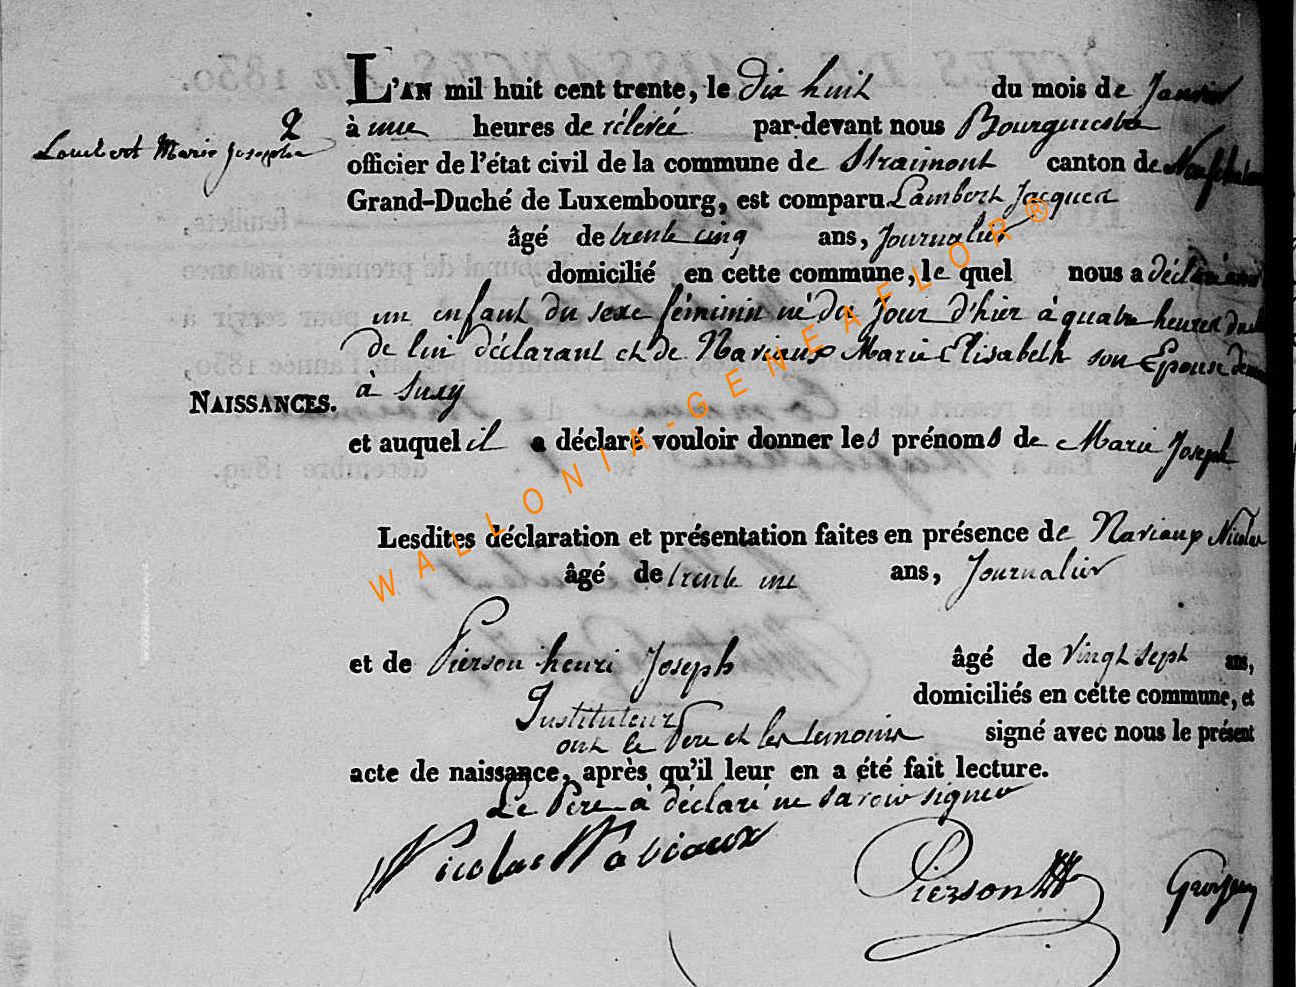 L'AN mil huit cent trente, le dix huit du mois de Janvier
2
Lambert Marie Josephe
à une heures de rélevée par-devant nous
officier de l'état civil de la commune de Straimont canton de
Grand-Duché de Luxembourg, est comparu Lambert Jacques
âgé de trente cinq ans, Journalier
domicilié en cette commune, le quel nous a déclaré
un enfant du sexe féminin né du Jour d'hier à quatre heures du
de lui déclarant et de Naviaux Marie Elisabeth son Epouse
à Suxy
NAISSANCES.
et auquel il a déclaré vouloir donner les prénoms de Marie Joseph
Lesdites déclaration et présentation faites en présence de Naviaux Nicolas
âgé de trente une ans, Journalier
et de Pierson henri Joseph âgé de vingt sept ans,
Instituteur domiciliés en cette commune, et
ont le Pere et les temoins signé avec nous le présent
acte de naissance, après qu'il leur en a été fait lecture.
Le Pere à déclaré ne savoir signer
Nicolas Naviaux
Pierson
WALLONIA-GENEAFLOR®